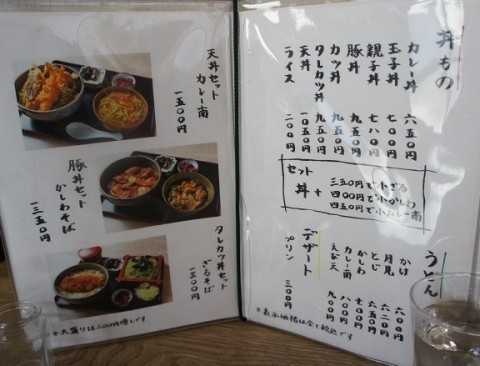 丼もの
カレー丼 六五〇円
玉子丼 七〇〇円
親子丼 七八〇円
豚丼 九五〇円
カツ丼 九五〇円
タレカツ丼 九五〇円
天丼 一一〇〇円
ライス 二〇〇円
セット
丼 +
三五〇円で小ざる
四〇〇円で小かしわ
四五〇円で小カレー南
うどん
かけ 六〇〇円
月見 六二〇円
とじ 六五〇円
かしわ 七〇〇円
カレー南 八〇〇円
えび天 九〇〇円
デザート
プリン 三〇〇円
※表示価格は全て税込です
天丼セット
カレー南
一五〇〇円
豚丼セット
かしわそば
一三五〇円
タレカツ丼セット
ざるそば
一三〇〇円
※大盛りは二〇〇円増しです